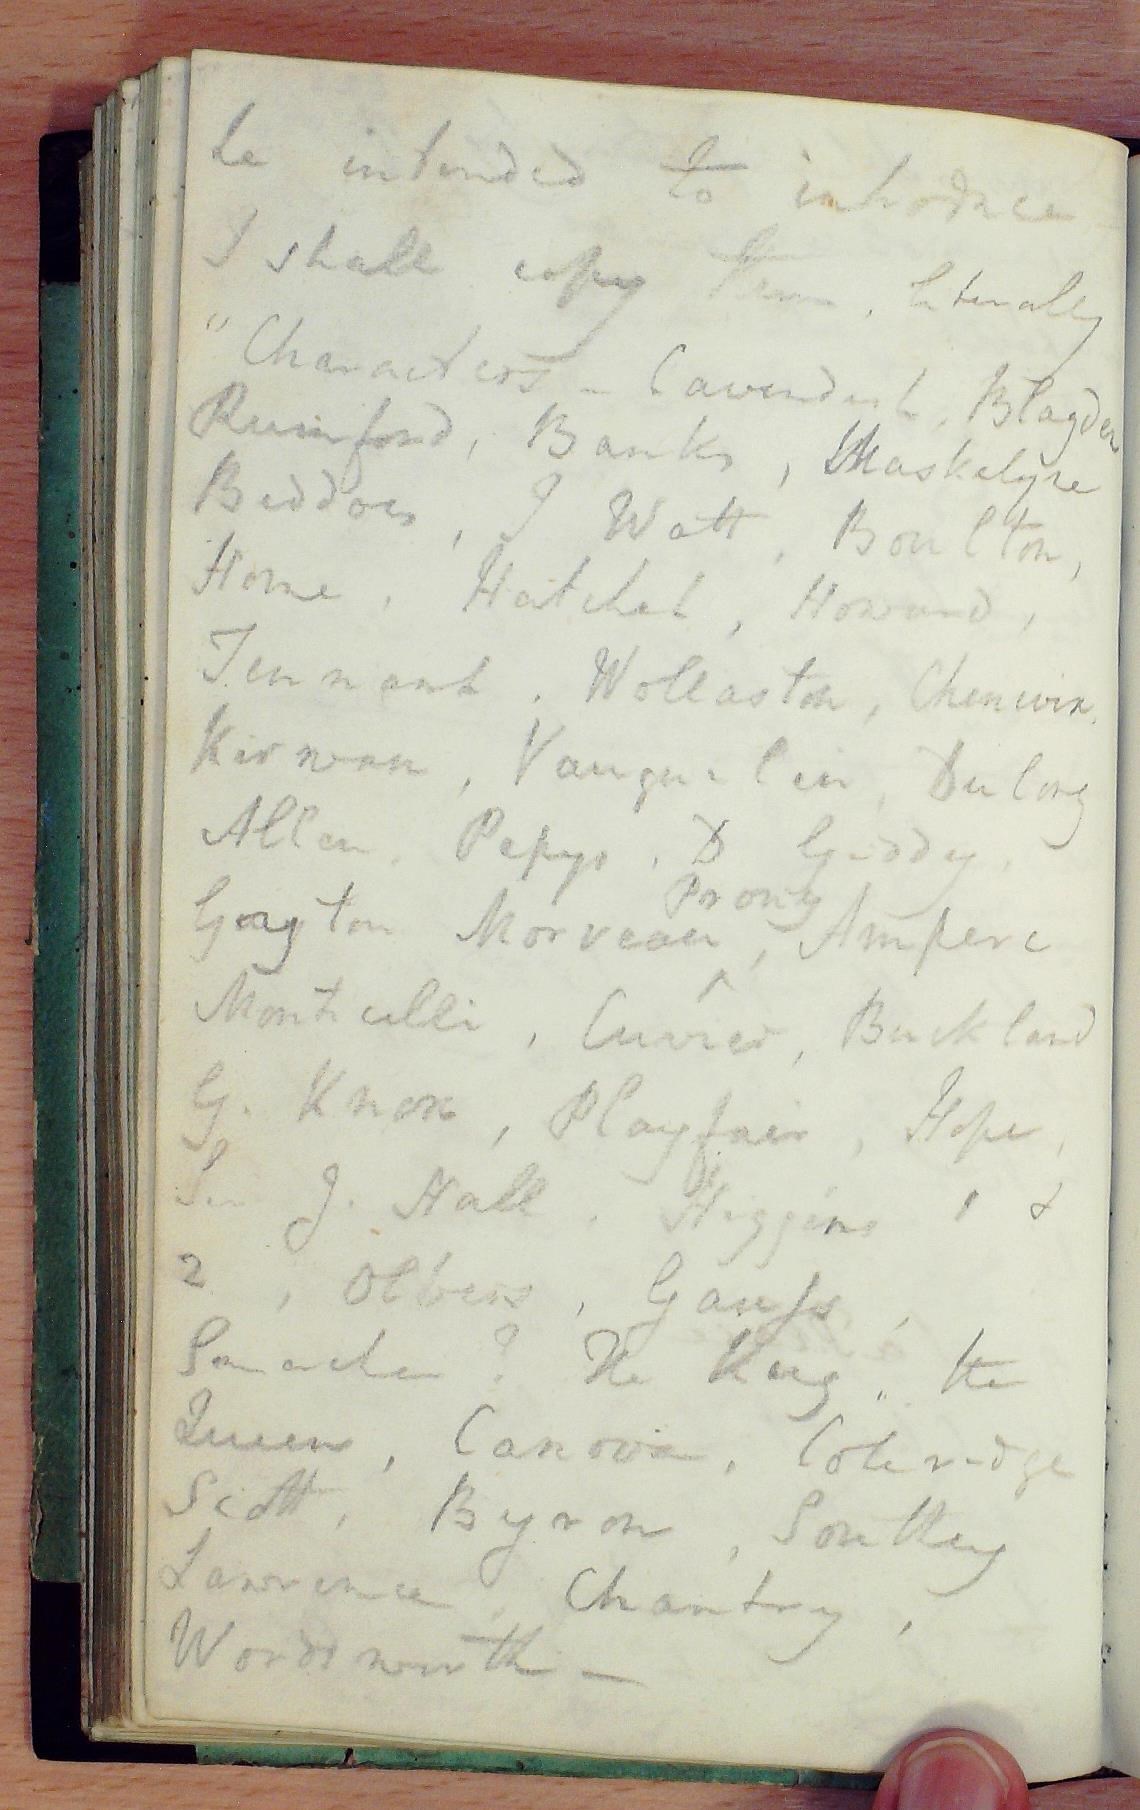 he intended to introduce
I shall copy them, literally
"Characters – Cavendish, Blagden
Rumford, Banks, Maskelyne
Beddoes, J Watt, Boulton,
Home, Hatchet, Howard,
Tennant, Wollaston, Chenevix,
Kirwan, Vauquelin, Dulong
Allen, Pepys, D Giddy,
Guyton Morveau, Prony, Ampere
Monticelli, Cuvier, Buckland
G. Knox, Playfair, Hope,
Sir J. Hall, Higgins 1 &
2, Olbers, Gauss,
? The King, the
Queen, Canova, Coleridge
Scott, Byron, Southey
Lawrence, Chantry,
Wordsworth –